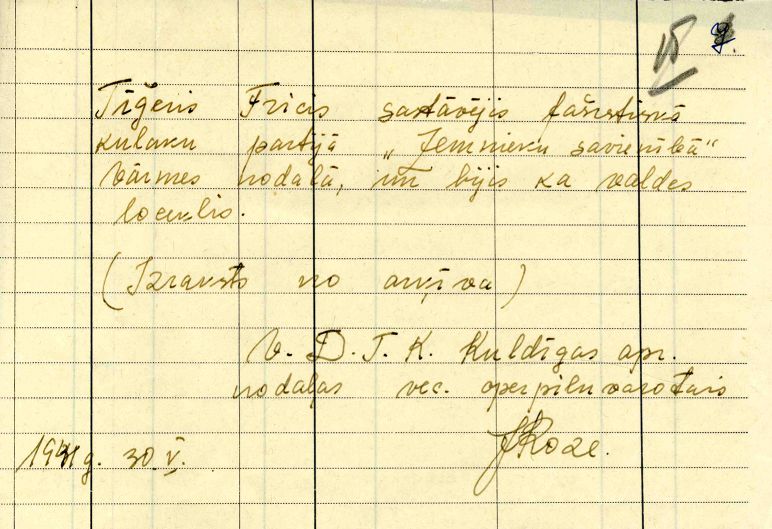 Tīģeris Fricis sastāvējis fašistiskā
kulaku partijā „Zemnieku savienībā“
Vārmes nodaļā, un bijis kā valdes
loceklis.
(Izraksts no arķīva)
V. D. T. K. Kuldīgas apr.
nodaļas vec. operpilnvarotais
Roze.
1941 g. 30. V.